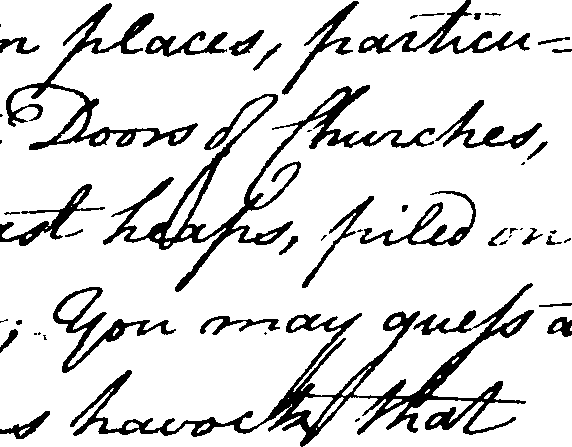 n places, particu=
Doors of Churches,
ast heaps, piled on
; You may guess a
s havock that